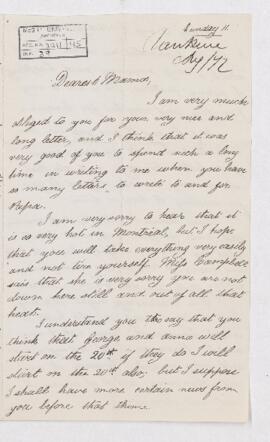 Sunday 11
Aug/72
Dearest Mama,
I am very much
obliged to you for your very nice and
long letter, and I think that it was
very good of you to spend such a long
time in writing to me when you have
so many letters to write to and for
Papa.
I am very sorry to hear that it
is so very hot in Montreal, but I hope
that you will take everything very easily
and not tire yourself. Miss Campbell
sais that she is very sorry you are not
down here still and out of all that
heat.
I understand you to say that you
think that George and Anna will
start on the 20th if they do I will
start on the 20th also, but I suppose
I shall have more certain news from
you before that time.